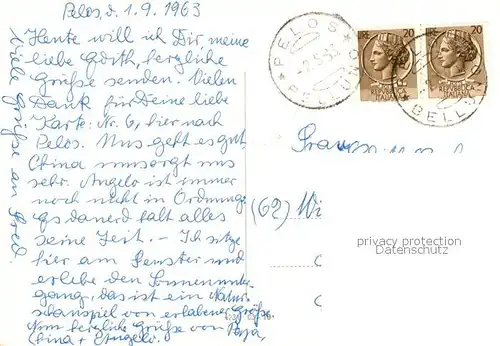 Pelos, d. 1.9.1963
Heute will ich Dir, meine
liebe Edith, herzliche
Grüße senden. Vielen
Dank für Deine liebe
Karte Nr. 6, hier nach
Pelos. Uns geht es gut
China umsorgt uns
sehr. Angelo ist immer
noch nicht in Ordnung
es dauerd halt alles
seine Zeit. – Ich sitze
hier am Fenster und
erlebe den Sonnenunter-
gang, das ist ein Natur-
schauspiel von erhabener Größe.
Nun herzliche Grüße von Papa,
China + Angelo.
Viele Grüße an Fred.
PELOS
BELLUNO
20
20
REPUBBLICA
ITALIANA
REPUBBLICA
ITALIANA
(62) Wi
privacy protection
Datenschutz